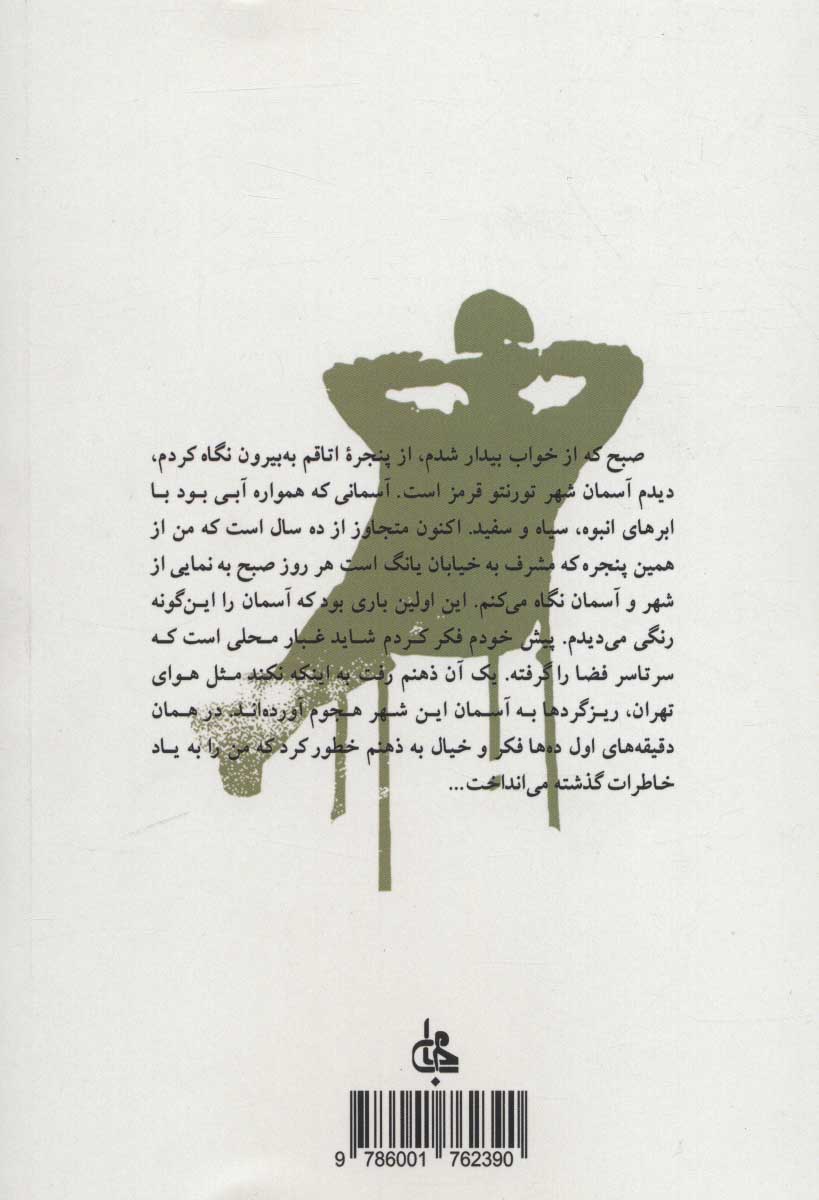 صبح که از خواب بیدار شدم، از پنجرهٔ اتاقم به‌بیرون نگاه کردم،
دیدم آسمان شهر تورنتو قرمز است. آسمانی که همواره آبی بود با
ابرهای انبوه، سیاه و سفید. اکنون متجاوز از ده سال است که من از
همین پنجره که مشرف به خیابان یانگ است هر روز صبح به نمایی از
شهر و آسمان نگاه می‌کنم. این اولین باری بود که آسمان را این‌گونه
رنگی می‌دیدم. پیش خودم فکر کردم شاید غبار محلی است که
سرتاسر فضا را گرفته. یک آن ذهنم رفت به اینکه نکند مثل هوای
تهران، ریزگردها به آسمان این شهر هجوم آورده‌اند. در همان
دقیقه‌های اول ده‌ها فکر و خیال به ذهنم خطور کرد که من را به یاد
خاطرات گذشته می‌انداخت...
9 786001 762390